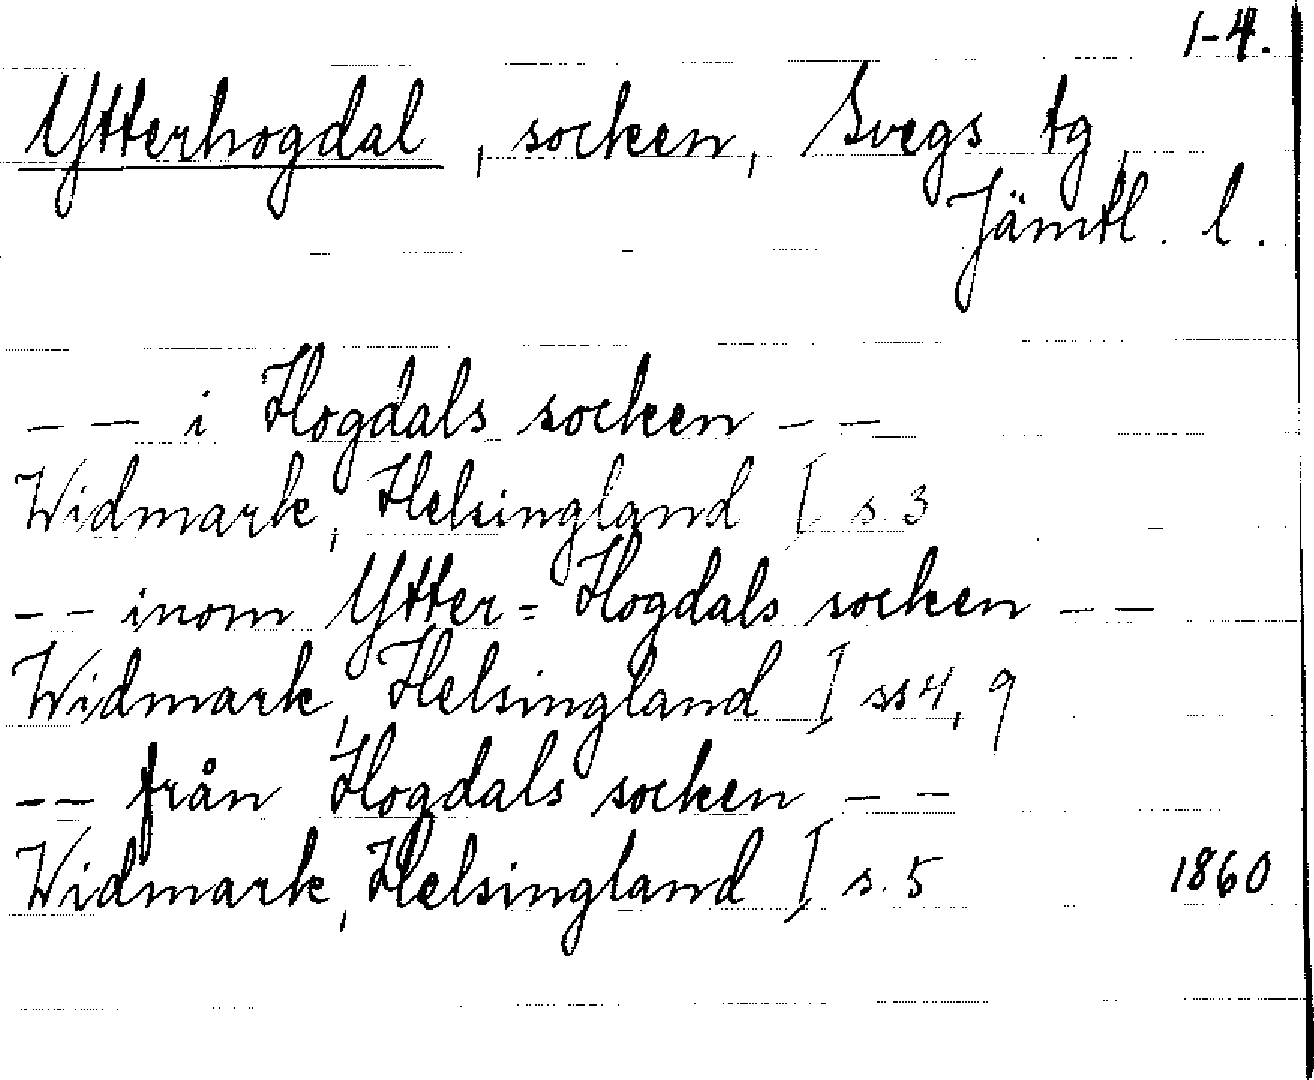 1-4.
Ytterhogdal, socken, Svegs tg
Jämtl. l.
-- i Hogdals socken --
Widmark, Helsingland I s 3
-- inom Ytter= Hogdals socken --
Widmark, Helsingland I ss 4, 9
-- från Hogdals socken --
Widmark, Helsingland I s. 5 1860